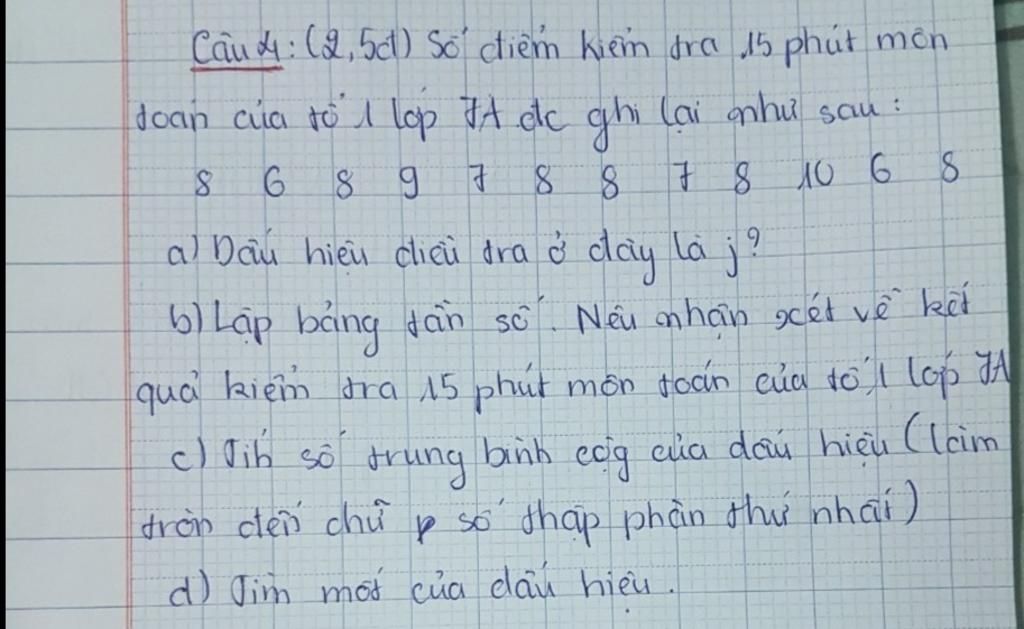 Câu 4: (2,5đ) Số điểm kiểm tra 15 phút môn
toán của tổ 1 lớp 7A đc ghi lại như sau:
8 6 8 9 7 8 8 7 8 10 6 8
a) Dấu hiệu điều tra ở đây là j?
b) Lập bảng tần số. Nêu nhận xét về kết
quả kiểm tra 15 phút môn toán của tổ 1 lớp 7A
c) Tíh số trung bình cộg của dấu hiệu (làm
tròn đến chữ số thập phân thứ nhất)
d) Tìm mốt của dấu hiệu.